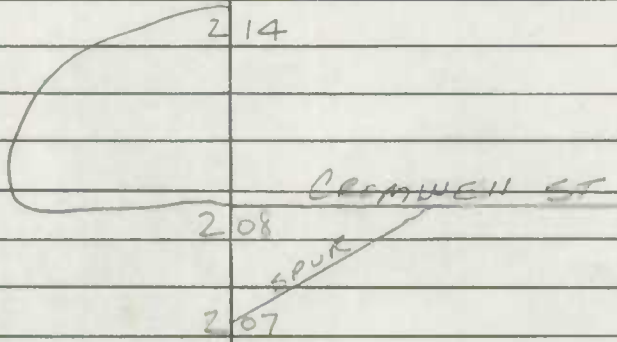 2 14
CREMWELL ST
2 08
SPUR
2 07